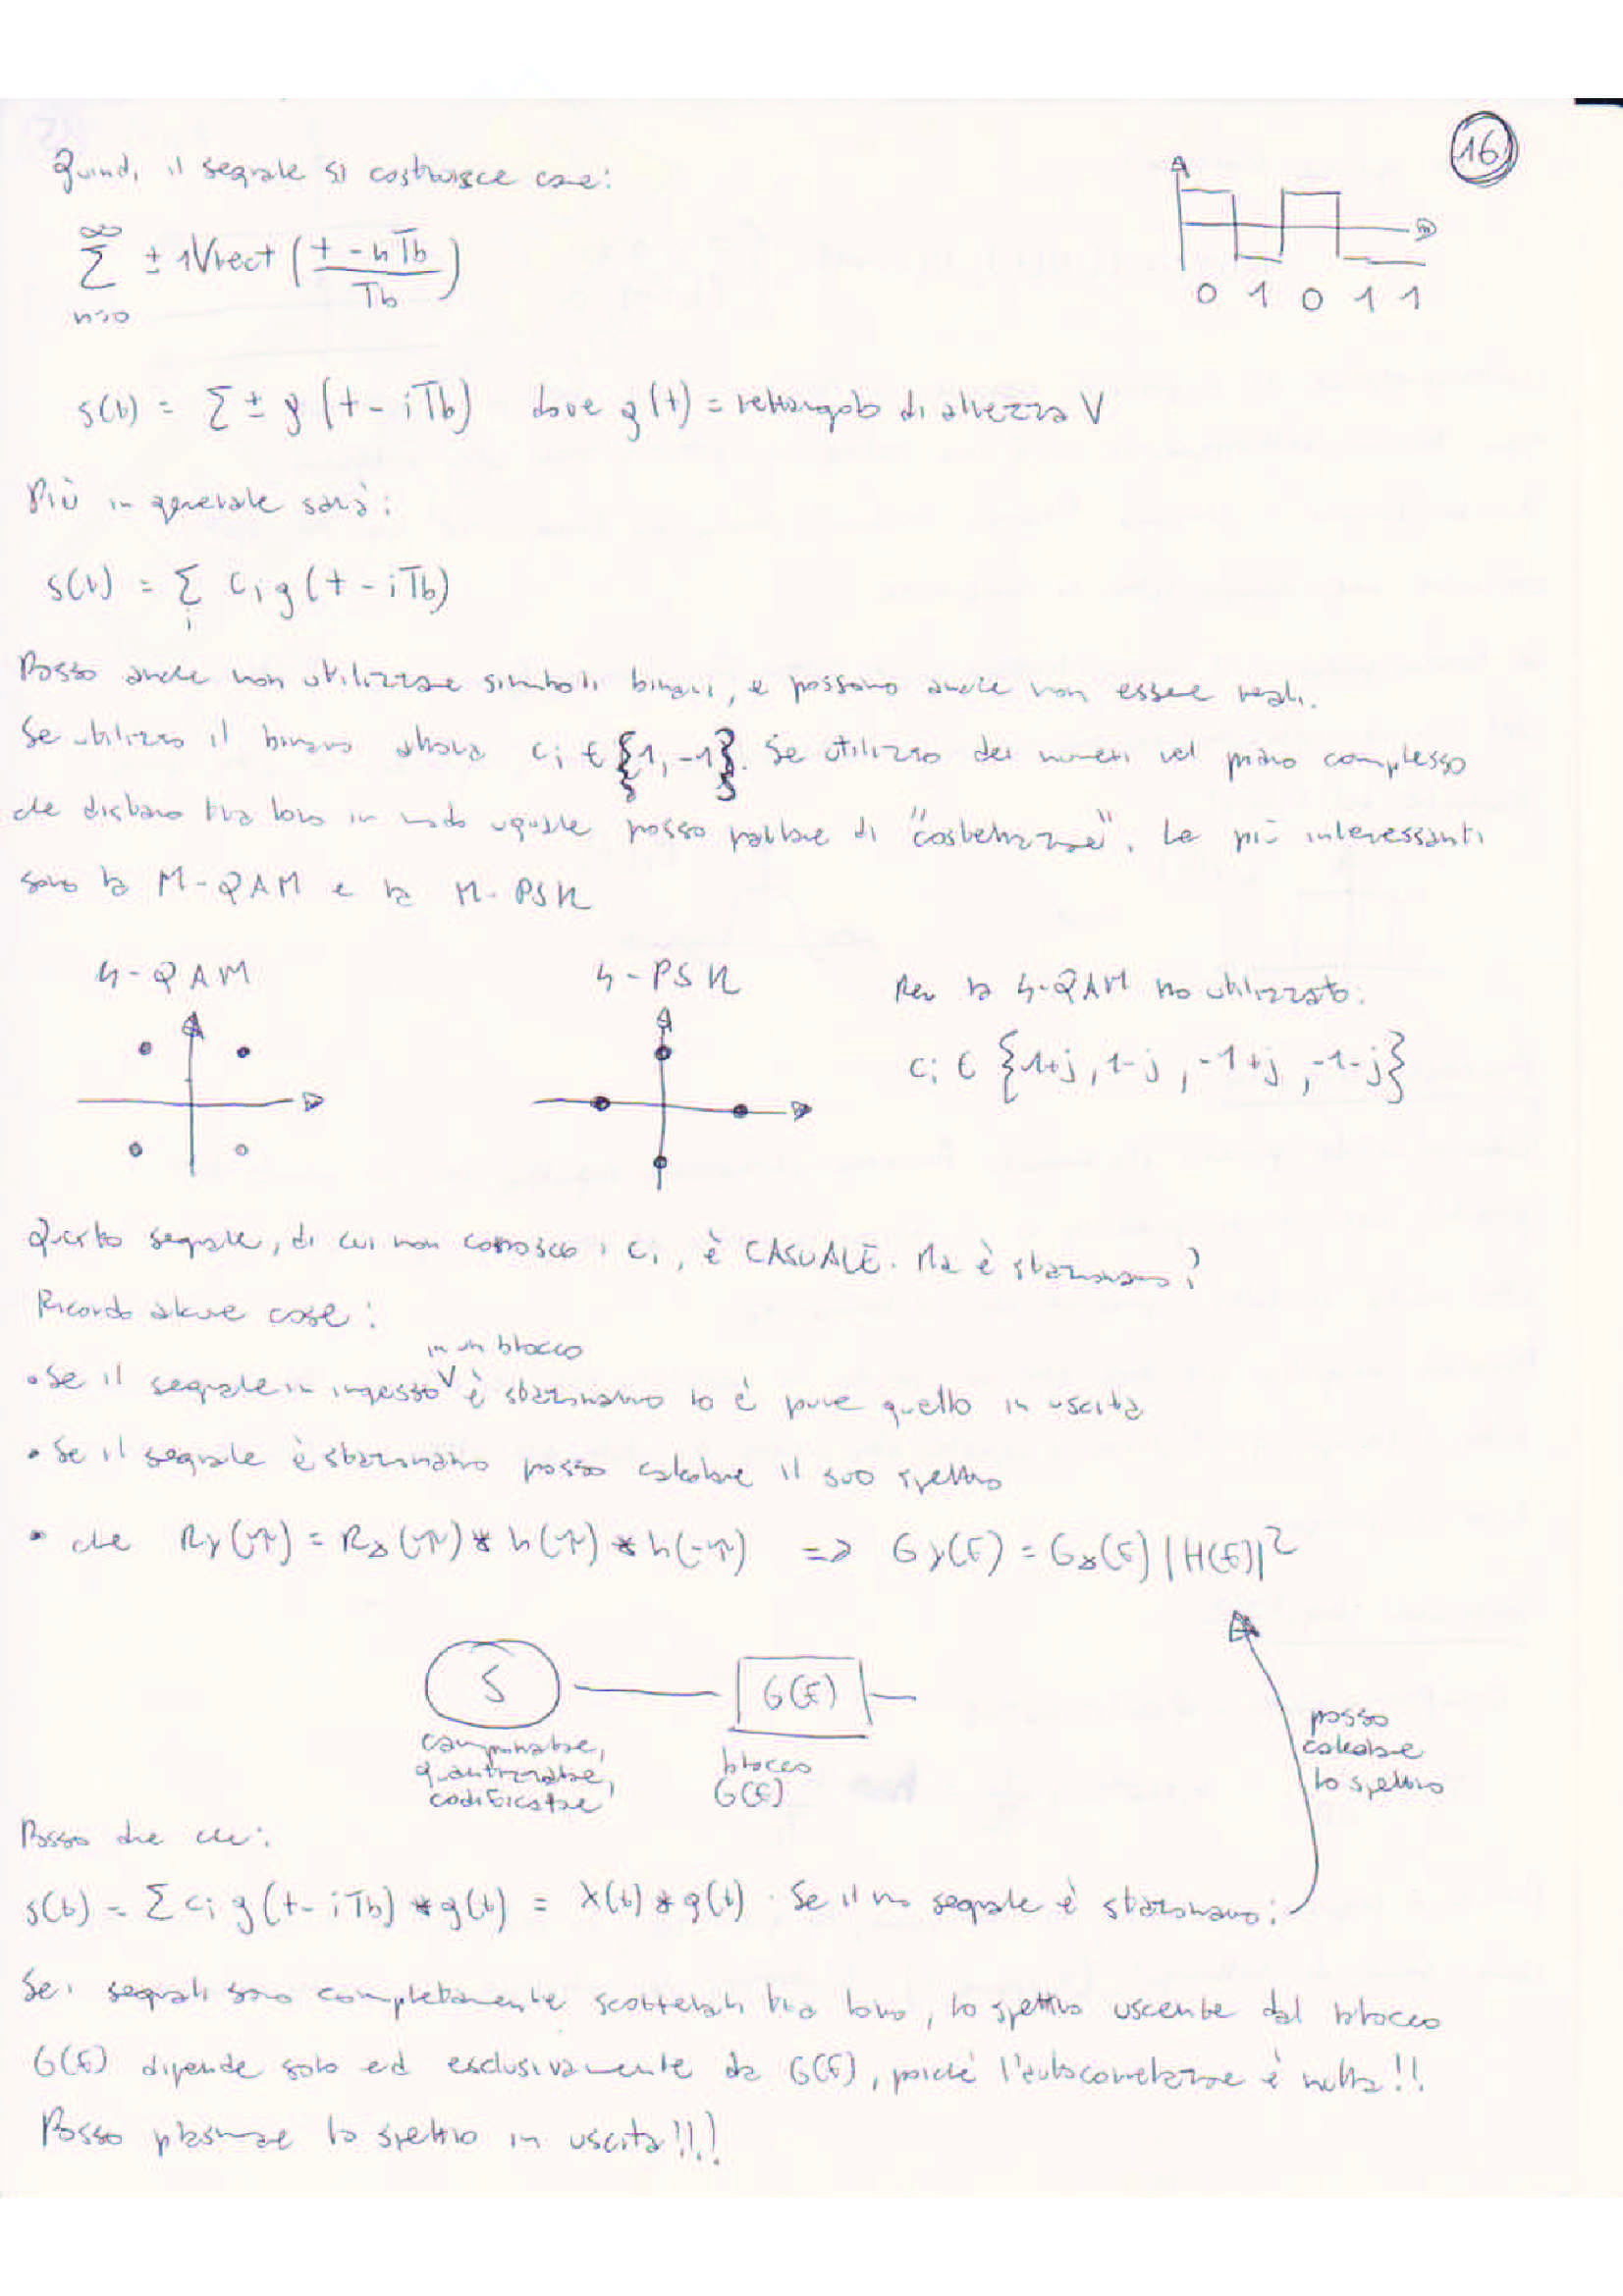 16
Quindi il segnale si costruisce come:
∞
∑ ± 1V rect ( (t - nTb) / Tb )
n=0
0 1 0 1 1
s(t) = ∑ ± g (t - iTb) dove g(t) = rettangolo di altezza V
Più in generale sarà:
s(t) = ∑ ci g(t - iTb)
i
Posso anche non utilizzare simboli binari, e possono anche non essere reali.
Se utilizzo il binario allora ci ∈ {1, -1}. Se utilizzo dei numeri nel piano complesso
che distano tra loro in modo uguale posso parlare di "costellazione". Le più interessanti
sono la M-QAM e la M-PSK
4-QAM
4-PSK
Per la 4-QAM ho utilizzato:
ci ∈ {1+j, 1-j, -1+j, -1-j}
Questo segnale, di cui non conosco i ci, è CASUALE. Ma è stazionario?
Ricordo alcune cose:
in un blocco
• Se il segnale in ingresso è stazionario lo è pure quello in uscita
• Se il segnale è stazionario posso calcolare il suo spettro
• che Ry(τ) = Rx(τ) * h(τ) * h(-τ) => Gy(f) = Gx(f) |H(f)|²
S
G(f)
campionatore,
quantizzatore,
codificatore
blocco
G(f)
posso
calcolare
lo spettro
Posso dire che:
s(t) = ∑ ci g(t - iTb) * g(t) = x(t) * g(t). Se il mio segnale è stazionario:
Se i segnali sono completamente scorrelati tra loro, lo spettro uscente dal blocco
G(f) dipende solo ed esclusivamente da G(f), poiché l'autocorrelazione è nulla!!
Posso plasmare lo spettro in uscita!!!